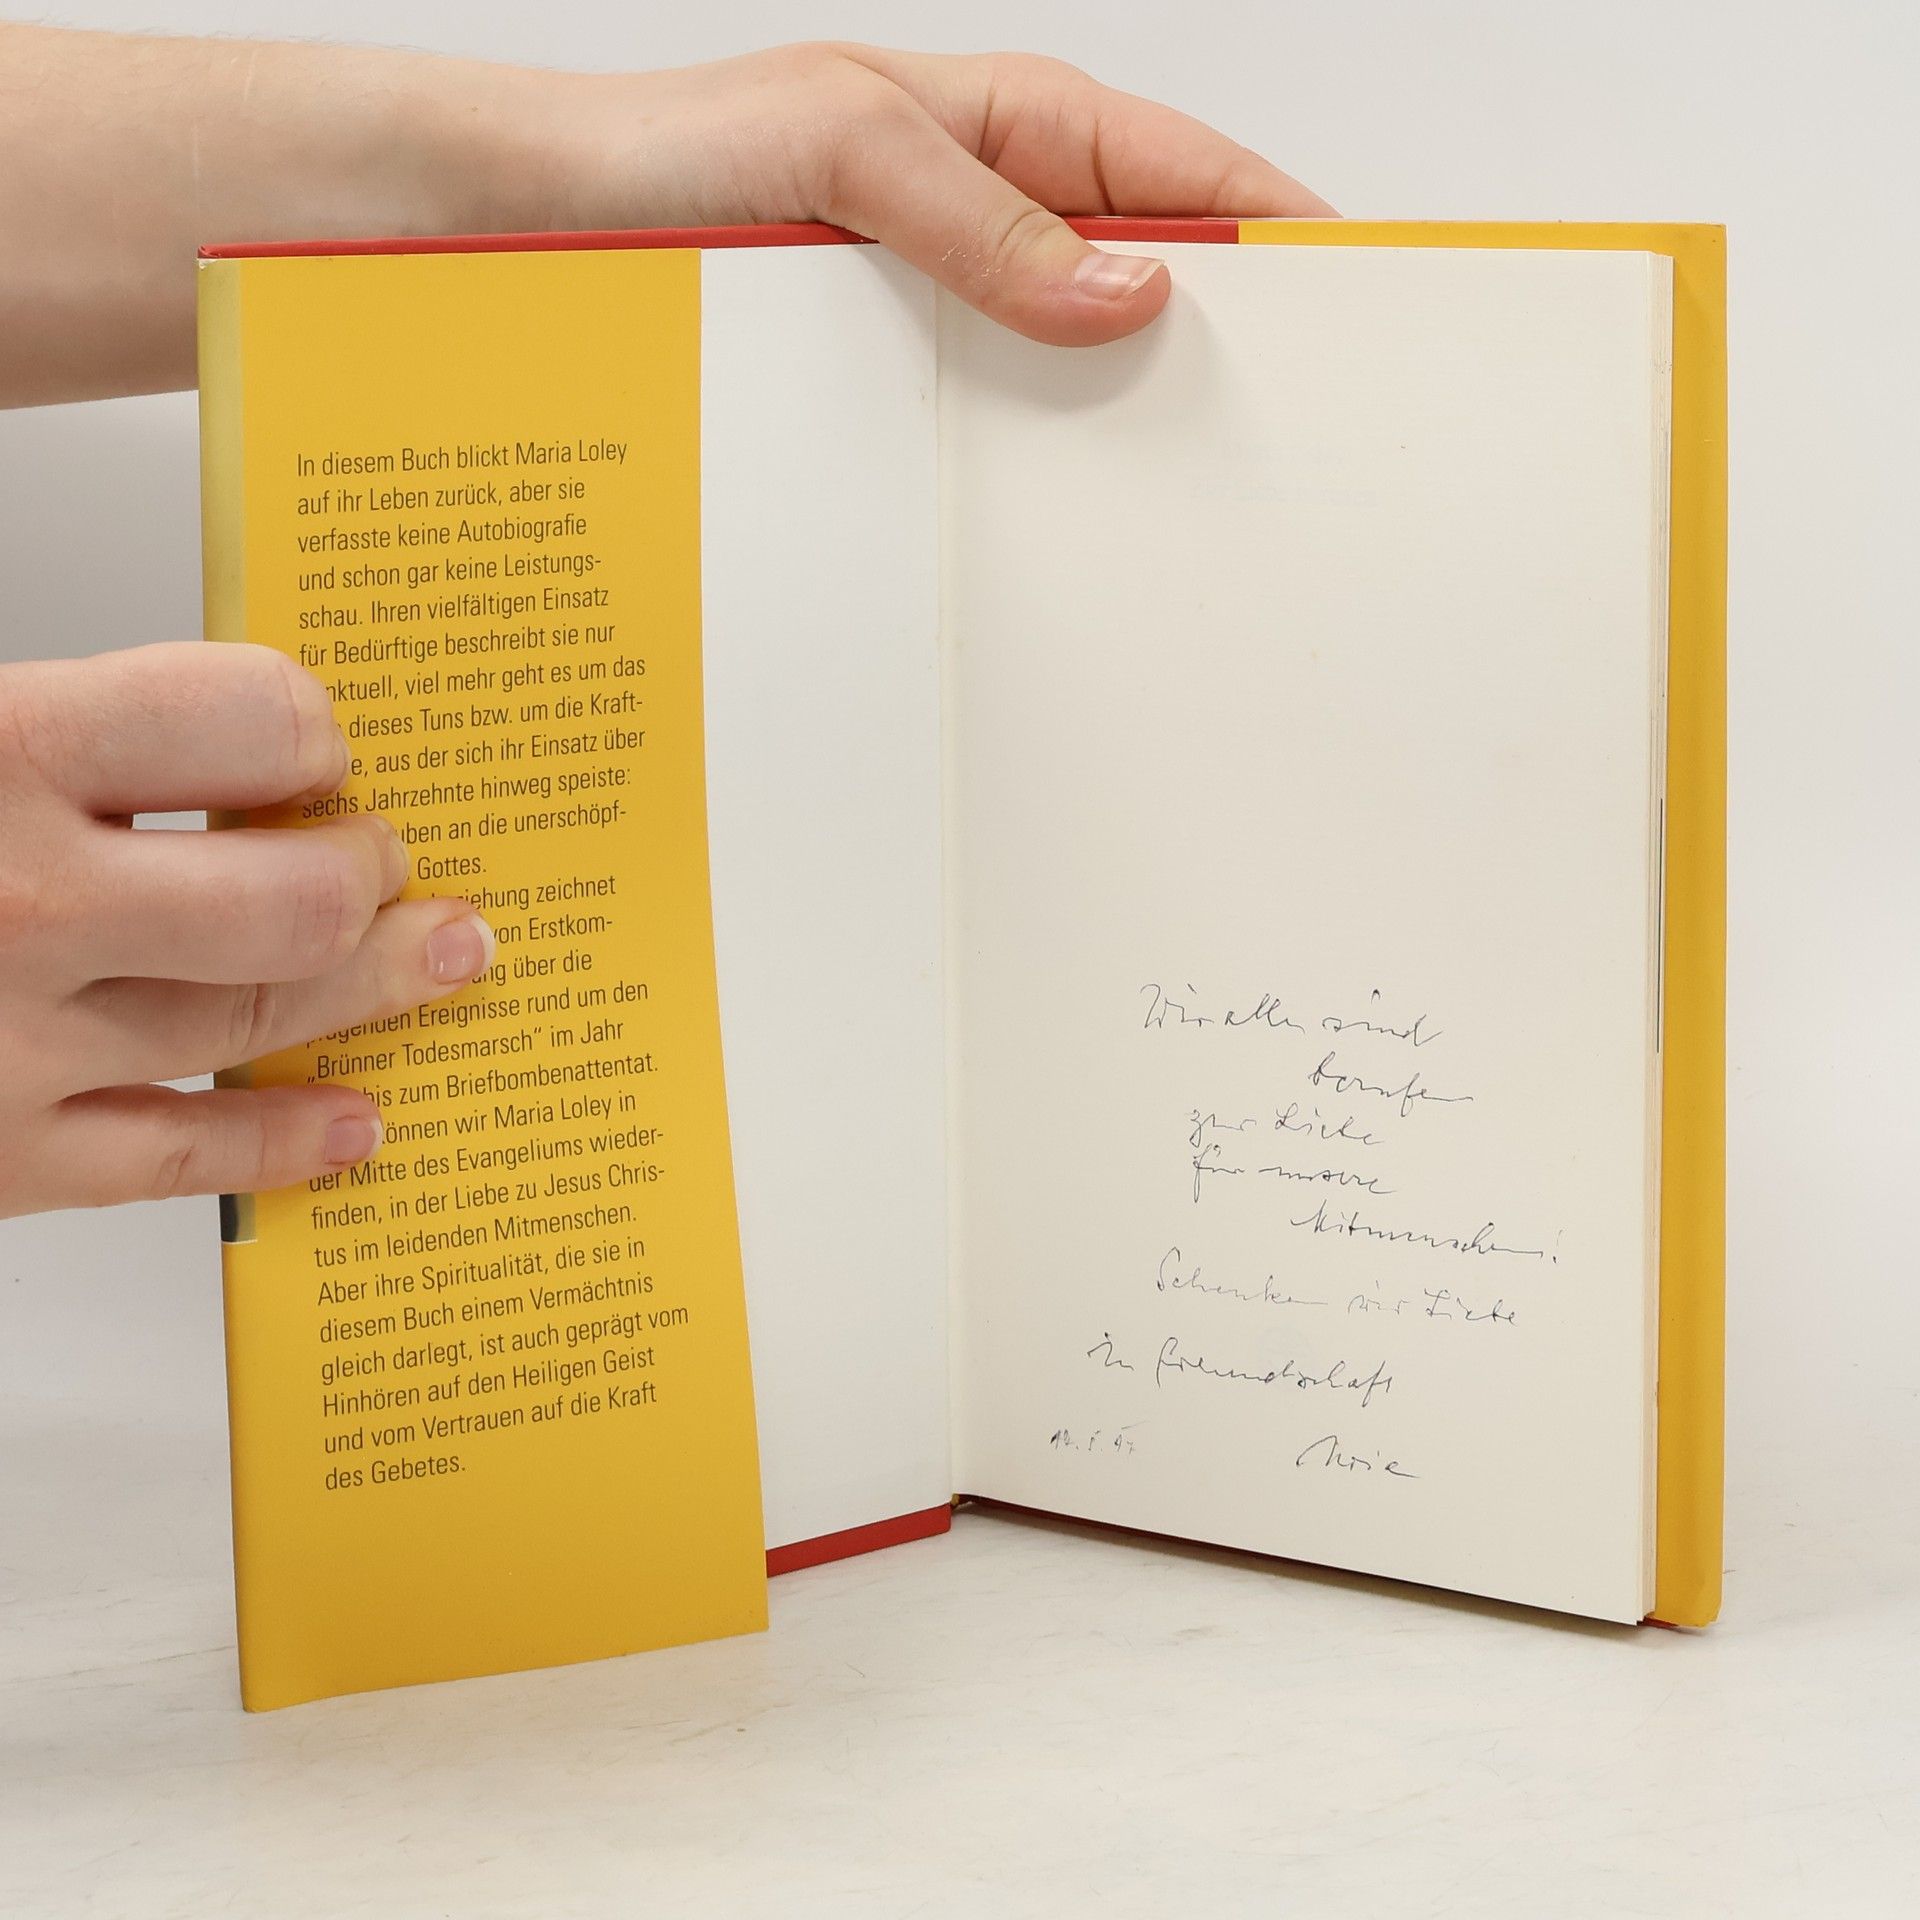 In diesem Buch blickt Maria Loley
auf ihr Leben zurück, aber sie
verfasste keine Autobiografie
und schon gar keine Leistungs-
schau. Ihren vielfältigen Einsatz
für Bedürftige beschreibt sie nur
nktuell, viel mehr geht es um das
dieses Tuns bzw. um die Kraft-
e, aus der sich ihr Einsatz über
sechs Jahrzehnte hinweg speiste:
uben an die unerschöpf-
Gottes.
ziehung zeichnet
von Erstkom-
ng über die
prägenden Ereignisse rund um den
„Brünner Todesmarsch“ im Jahr
bis zum Briefbombenattentat.
können wir Maria Loley in
der Mitte des Evangeliums wieder-
finden, in der Liebe zu Jesus Chris-
tus im leidenden Mitmenschen.
Aber ihre Spiritualität, die sie in
diesem Buch einem Vermächtnis
gleich darlegt, ist auch geprägt vom
Hinhören auf den Heiligen Geist
und vom Vertrauen auf die Kraft
des Gebetes.
Wir alle sind
berufen
zur Liebe
für unsere
Mitmenschen!
Schenken wir Liebe
in Freundschaft